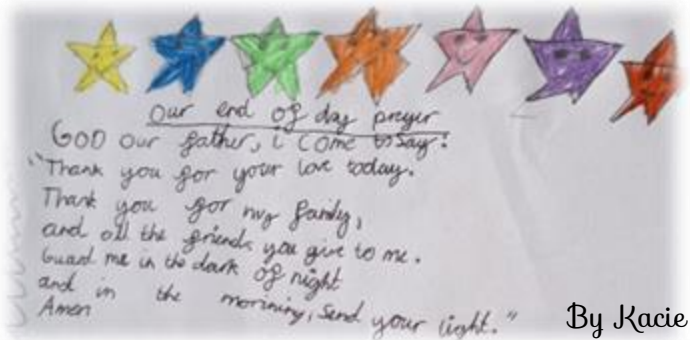 Our end of day preyer
GOD our father, i come to say:
"Thank you for your love today.
Thank you for my family,
and all the friends you give to me.
Guard me in the dark of night
and in the morining, send your light."
Amen
By Kacie